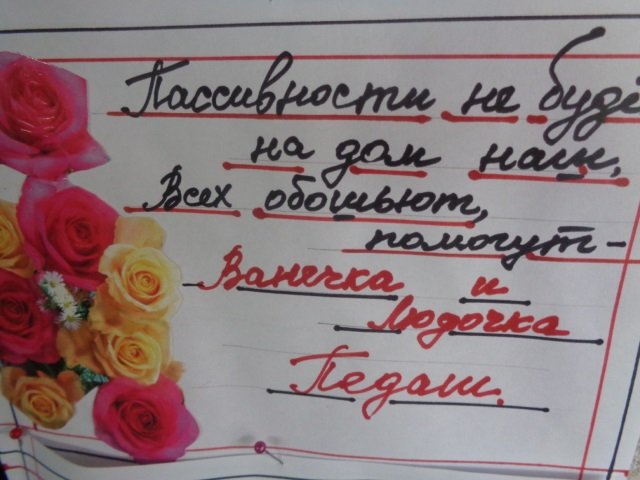 Пассивности не буд
на дом наш,
Всех обошьют,
помогут -
Ванечка и
Людочка
Педаш.